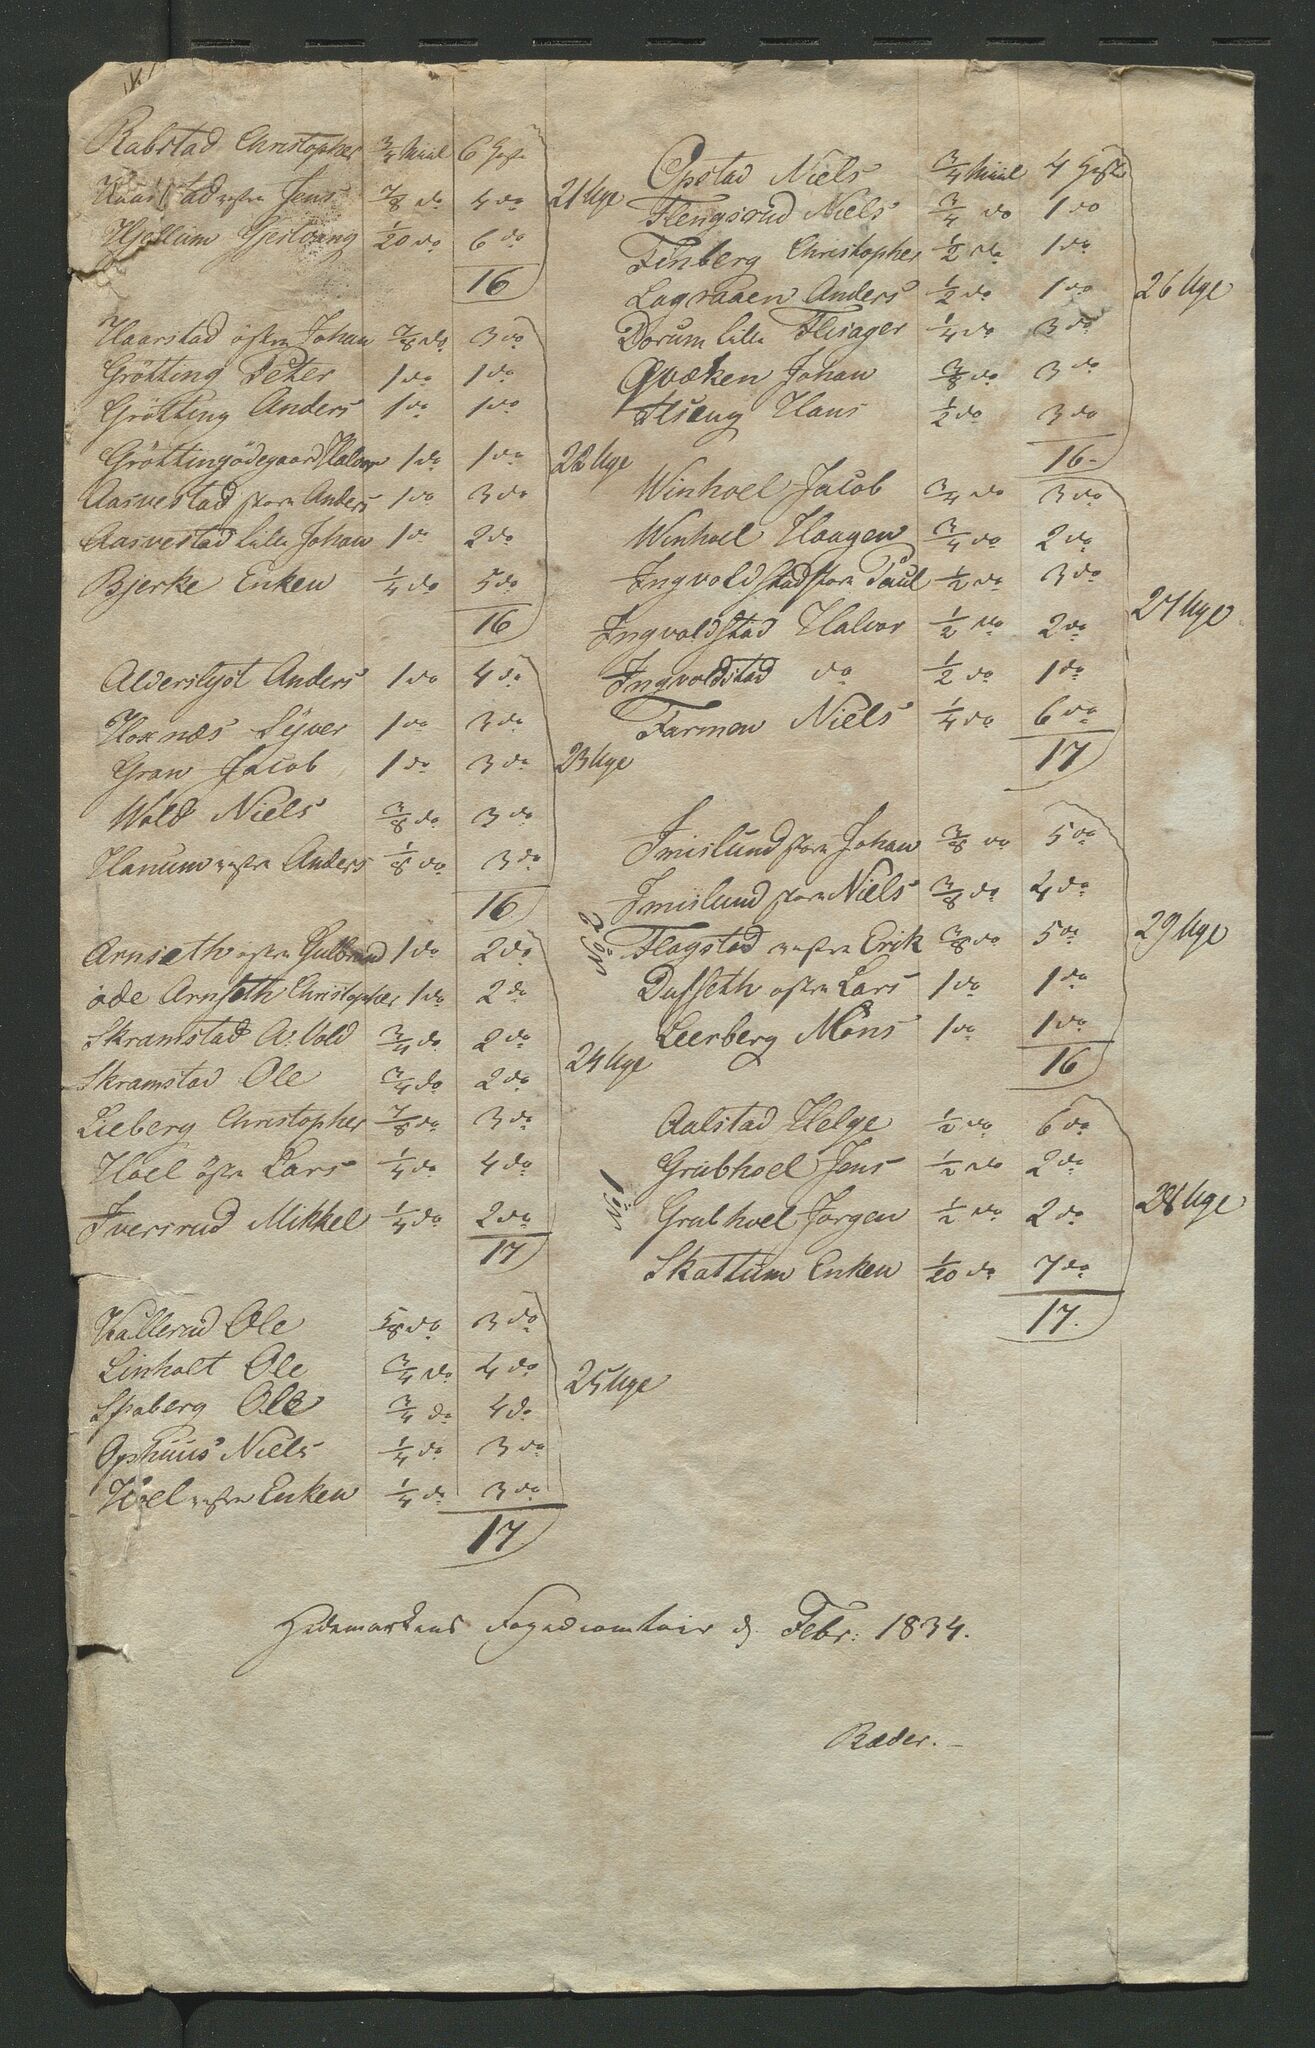 Rabstad Christopher 3/4 Miil 6 Heste
Haarstad vestre Jens 7/8 do 4 do 21 Uge
Hjellum Gjestvang 1/20 do 6 do
16
Haarstad östre Johan 7/8 do 3 do
Grötting Peter 1 do 1 do
Grötting Anders 1 do 1 do
Gröttingödegaard Halvor 1 do 1 do 22 Uge
Aasvestad store Anders 1 do 3 do
Aasvestad lille Johan 1 do 2 do
Bjerke Enken 1/4 do 5 do
16
Alderslyst Anders 1 do 4 do
Hornæs Syver 1 do 3 do
Gran Jacob 1 do 3 do 23 Uge
Wold Niels 3/8 do 3 do
Hanum vestre Anders 1/8 do 3 do
16
Arnseth östre Gulbrand 1 do 2 do
öde Arnseth Christopher 1 do 2 do
Skramstad A: Vold 3/4 do 2 do
Skramstad Ole 3/4 do 2 do 24 Uge
Lieberg Christopher 7/8 do 3 do
Hoel östre Lars 1/4 do 4 do
Iversrud Mikkel 1/4 do 2 do
17
Kallerud Ole 5/8 do 3 do
Linholt Ole 3/4 do 4 do 25 Uge
Spaberg Ole 3/4 do 4 do
Ophuus Niels 1/4 do 3 do
Hoel vestre Enken 1/4 do 3 do
17
Opstad Niels 3/4 Miil 4 Heste
Flengsrud Niels 3/4 do 1 do
Finberg Christopher 1/2 do 1 do
Lageraaen Anders 1/2 do 1 do 26 Uge
Dorum lille Flisager 1/4 do 3 do
Qvæken Johan 3/8 do 3 do
Flseng Hans 1/2 do 3 do
16
Winhoel Jacob 3/4 do 3 do
Winhoel Haagen 3/4 do 2 do
Ingvoldstad store Paul 1/2 do 3 do
Ingvoldstad Halvor 1/2 do 2 do 27 Uge
Ingvoldstad do 1/2 do 1 do
Farmen Niels 1/4 do 6 do
17
Imislund store Johan 3/8 do 5 do
Imislund store Niels 3/8 do 4 do
No 2 Flagstad vestre Erik 3/8 do 5 do 29 Uge
Dufseth östre Lars 1 do 1 do
Leerberg Mons 1 do 1 do
16
Aalstad Helge 1/2 do 6 do
Grubhoel Jens 1/2 do 2 do
No 1 Grubhoel Jørgen 1/2 do 2 do 28 Uge
Skattum Enken 1/20 do 7 do
17
Hedemarkens Fogedcomtoir d. Febr: 1834.
Ræder.